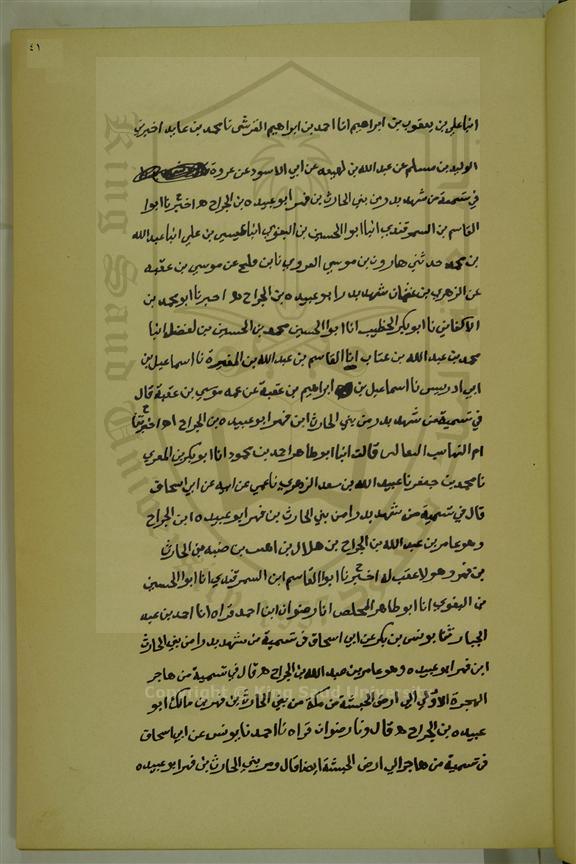 ٤١
انبا علي بن يعقوب بن ابراهيم انا احمد بن ابراهيم القرشي نا محمد بن عايد اخبرني
الوليد بن مسلم عن عبد الله بن لهيعه عن ابي الاسود عن عروة
في تسمية من شهد بدر من بني الحارث بن فهر ابو عبيده بن الجراح ه اخبرنا ابوا
القاسم بن السمرقندي انبا ابوا الحسين بن البغوي انبا عيسى بن علي انبا عبد الله
بن محمد حدثني هارون بن موسي الفروي نا بن فليح عن موسي بن عقبه
عن الزهري بن عثمان شهد بدرا ابو عبيده بن الجراح ه اخبرنا ابو محمد بن
الاكفاني نا ابو بكر الخطيب انا ابوا الحسين محمد بن الحسين بن لفضل انبا
محمد بن عبد الله بن عتاب انا القاسم بن عبد الله بن المغيرة نا اسماعيل بن
ابي ادريس نا اسماعيل بن ابراهيم بن عقبة عن عمه موسي بن عقبة قال
في تسمية من شهد بدر من بني الحارث ابن فهر ابو عبيده بن الجراح اه اخبرتنا
ام البها قالت انبا ابو طاهر احمد بن محمود انا ابو بكر بن المقري
نا محمد بن جعفر نا عبيد الله بن سعد الزهري نا عمي عن ابيه عن ابي اسحاق
قال في تسمية من شهد بدرا من بني الحارث بن فهر ابو عبيده ابن الجراح
وهو عامر بن عبد الله بن الجراح بن هلال بن اهيب بن ضبه بن الحارث
بن فهر وهو لا عقب له اخبرنا ابوا القاسم ابن السمرقندي انا ابوا الحسين
بن البغوي انا ابو طاهر المخلص انا رضوان ابن احمد قراه انا احمد بن عبد
الجبار ثنا يونس بن بكر عن ابي اسحاق في تسمية من شهد بدرا من بني الحارث
ابن فهر ابو عبيده وهو عامر بن عبد الله بن الجراح ه قال في تسمية من هاجر
الهجرة الاولي الي ارض الحبشة من مكة من بني الحارث بن فهر بن مالك ابو
عبيده بن الجراح ه قال ونا رضوان قراه نا احمد نا يونس عن ابي اسحاق
في تسمية من هاجر الي ارض الحبشة ايضا قال ومن بني الحارث بن فهر ابو عبيده
King Saud University
1957
Copyright © King Saud University